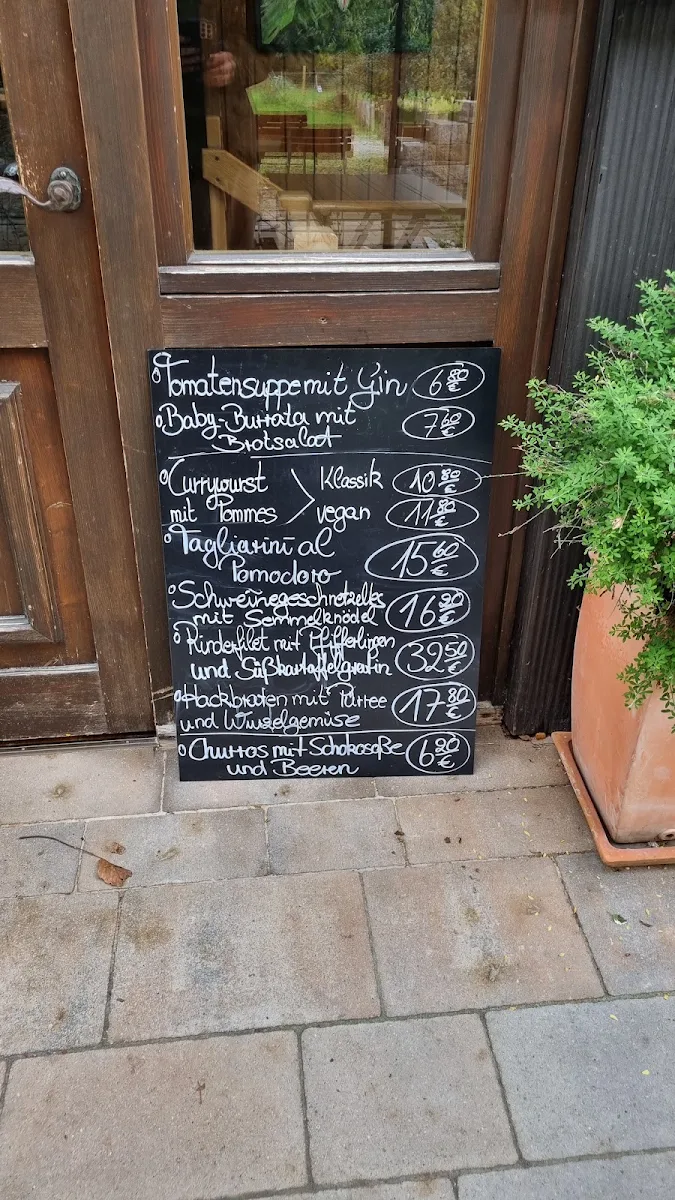 Tomatensuppe mit Gin 6 80 €
Baby-Burrata mit 7 60 €
Brotsalat
Currywurst Klassik 10 80 €
mit Pommes vegan 11 80 €
Tagliarini al
Pomodoro 15 60 €
Schweinegeschnetzeltes
mit Semmelknödel 16 90 €
Rinderfilet mit Pfifferlingen
und Süßkartoffelgratin 32 50 €
Hackbraten mit Pürree 17 80 €
und Wurzelgemüse
Churros mit Schokosoße 6 20 €
und Beeren